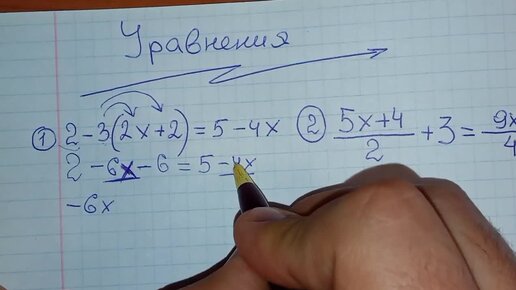 Уравнения
① 2 - 3(2x + 2) = 5 - 4x ② (5x + 4)/2 + 3 = 9x/4
2 - 6x - 6 = 5 - 4x
-6x